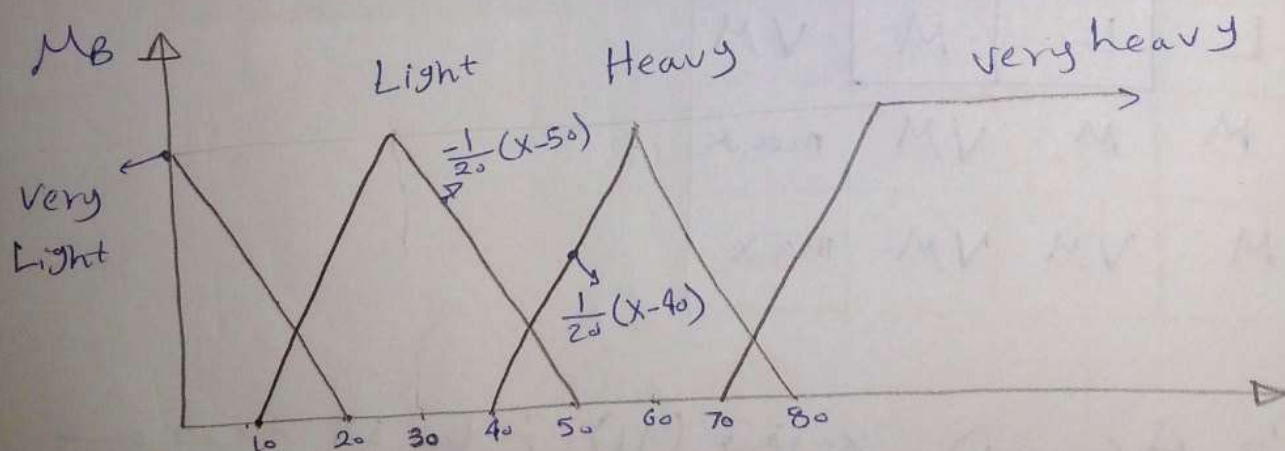 μB
Light
Heavy
very heavy
very
Light
-1/20 (x-50)
1/20 (x-40)
10 20 30 40 50 60 70 80